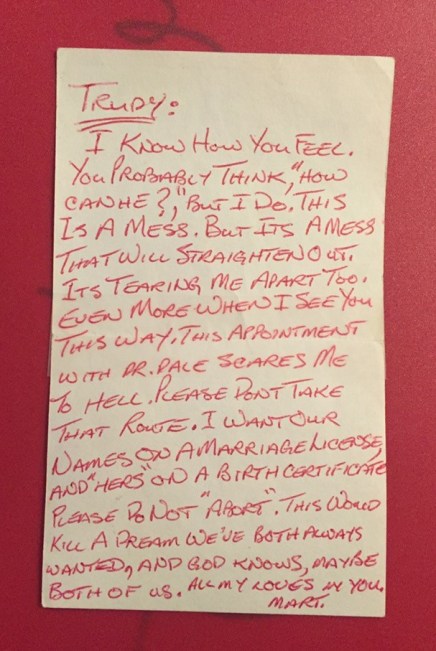 TRUDY:
I KNOW HOW YOU FEEL.
YOU PROBABLY THINK, "HOW
CAN HE?," BUT I DO. THIS
IS A MESS. BUT ITS A MESS
THAT WILL STRAIGHTEN OUT.
ITS TEARING ME APART TOO.
EVEN MORE WHEN I SEE YOU
THIS WAY. THIS APPOINTMENT
WITH DR. DALE SCARES ME
TO HELL. PLEASE DONT TAKE
THAT ROUTE. I WANT OUR
NAMES ON A MARRIAGE LICENSE,
AND "HERS" ON A BIRTH CERTIFICATE
PLEASE DO NOT "ABORT". THIS WOULD
KILL A DREAM WE'VE BOTH ALWAYS
WANTED, AND GOD KNOWS, MAYBE
BOTH OF US. ALL MY LOVES IN YOU.
MART.